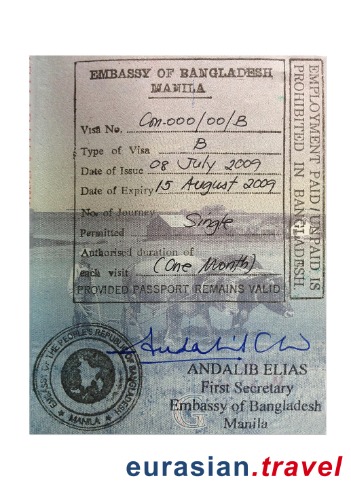 EMBASSY OF BANGLADESH
MANILA
Visa No. Con-000/00/B
Type of Visa B
Date of Issue 08 July 2009
Date of Expiry 15 August 2009
No. of Journey
Permitted Single
Authorised duration of
each visit (One Month)
PROVIDED PASSPORT REMAINS VALID
EMPLOYMENT PAID/UNPAID IS
PROHIBITED IN BANGLADESH.
EMBASSY OF THE PEOPLE'S REPUBLIC OF BANGLADESH
MANILA
ANDALIB ELIAS
First Secretary
Embassy of Bangladesh
Manila
eurasian.travel